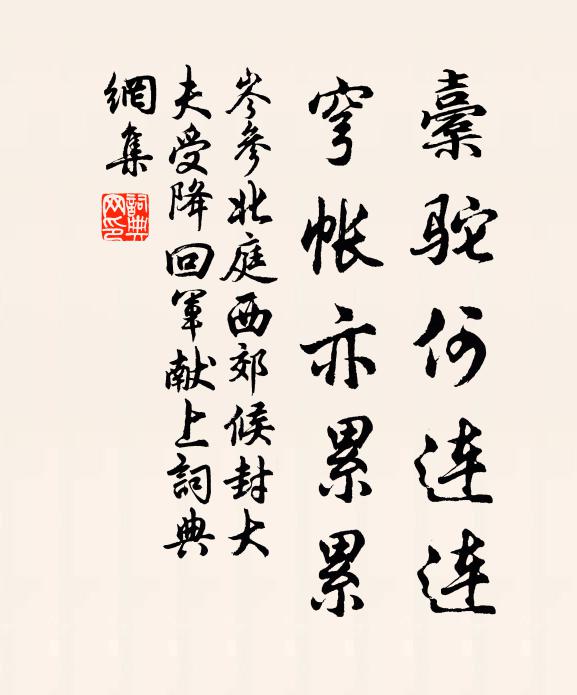 橐駝何连连
穹帐亦累累
岑參北庭西郊候封大
夫受降回軍献上詞典
網集
詞典
网印